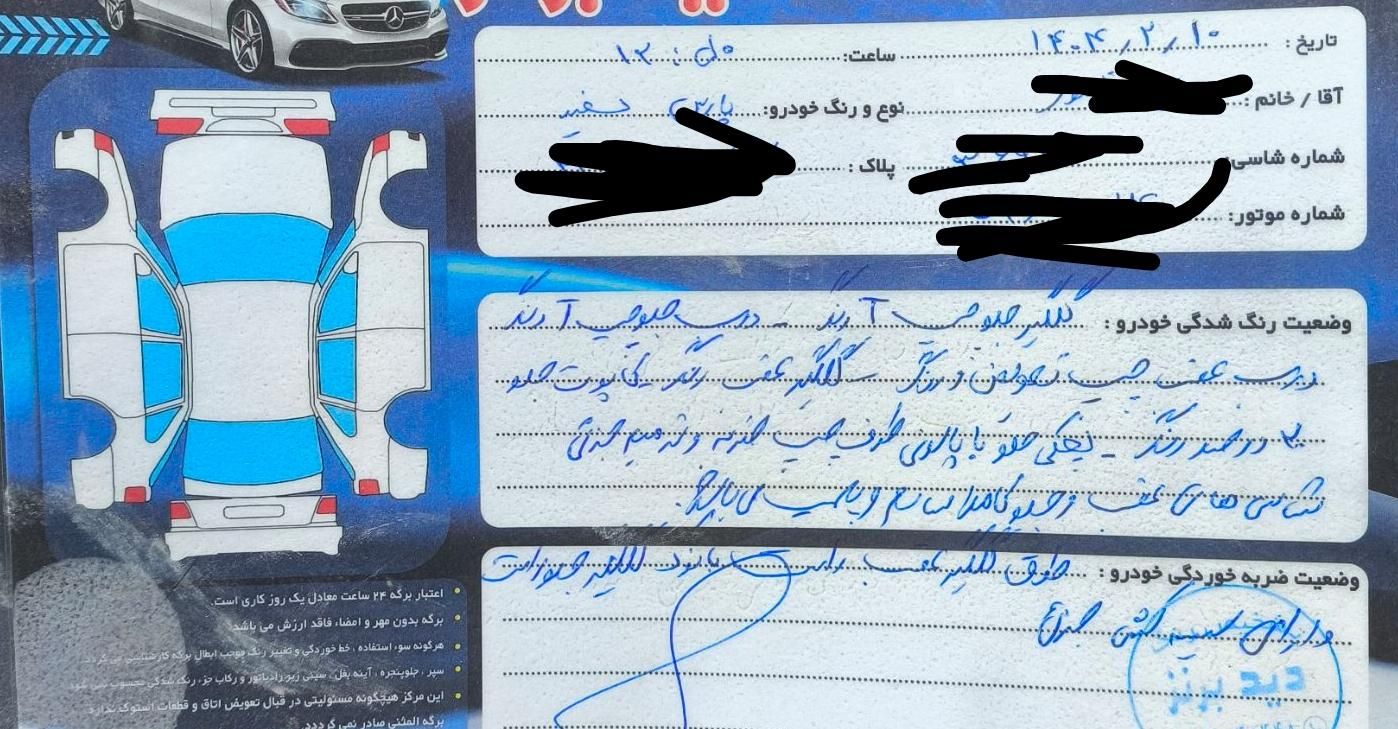 تاریخ : ۱۴۰۴/۲/۱۰ ساعت: ۱۳:۵۰
آقا / خانم : نوع و رنگ خودرو: پارس سفید
شماره شاسی: پلاک :
شماره موتور:
وضعیت رنگ شدگی خودرو : گلگیر جلو چپ آ رنگ - درب جلو چپ آ رنگ
درب عقب چپ تعویض و رنگ - گلگیر عقب رنگ - کاپوت جلو
۳ درصد رنگ - جلو با پالونی طرف چپ ضربه و ترمیم جزئی
شاسی های عقب و جلو کاملا سالم و پلمپ می باشد.
وضعیت ضربه خوردگی خودرو : طوق گلگیر عقب راست گلگیر جلو راست
جزئی
دید برتر
اعتبار برگه ۲۴ ساعت معادل یک روز کاری است.
برگه بدون مهر و امضا، فاقد ارزش می باشد
هرگونه سوء استفاده ، خط خوردگی و تغییر رنگ موجب ابطال برگه کارشناسی می گردد.
سپر ، جلوپنجره ، آینه بغل ، سینی زیر رادیاتور و رکاب جزء رنگ شدگی محسوب نمی شود
این مرکز هیچگونه مسئولیتی در قبال تعویض اتاق و قطعات استوک ندارد
برگه المثنی صادر نمی گردد.